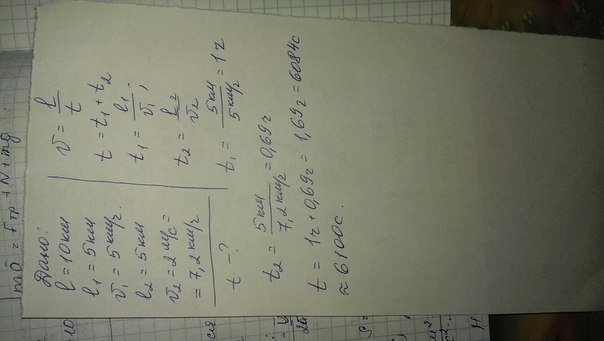 mā = Fтр + N + mg
Дано:
l = 10км
l₁ = 5км
v₁ = 5км/г.
l₂ = 5км
v₂ = 2м/с =
= 7,2км/г
t - ?
v = l/t
t = t₁ + t₂
t₁ = l₁/v₁;
t₂ = l₂/v₂
t₁ = 5км/5км/г = 1г
t₂ = 5км/7,2км/г = 0,69г.
t = 1г + 0,69г = 1,69г = 6084с
≈ 6100с.